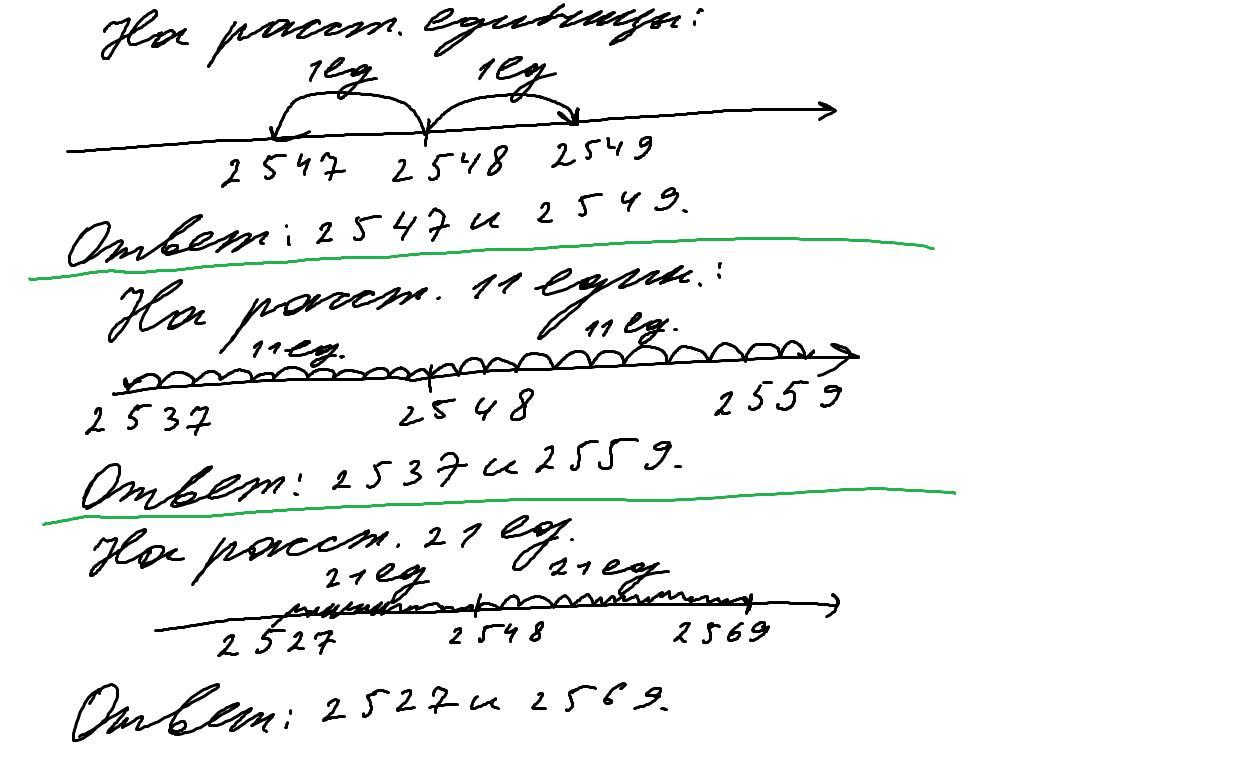 На расст. единицы:
1ед 1ед
2547 2548 2549
Ответ: 2547 и 2549.
На расст. 11 един.:
11ед. 11ед.
2537 2548 2559
Ответ: 2537 и 2559.
На расст. 21 ед.
21ед 21ед
2527 2548 2569
Ответ: 2527 и 2569.